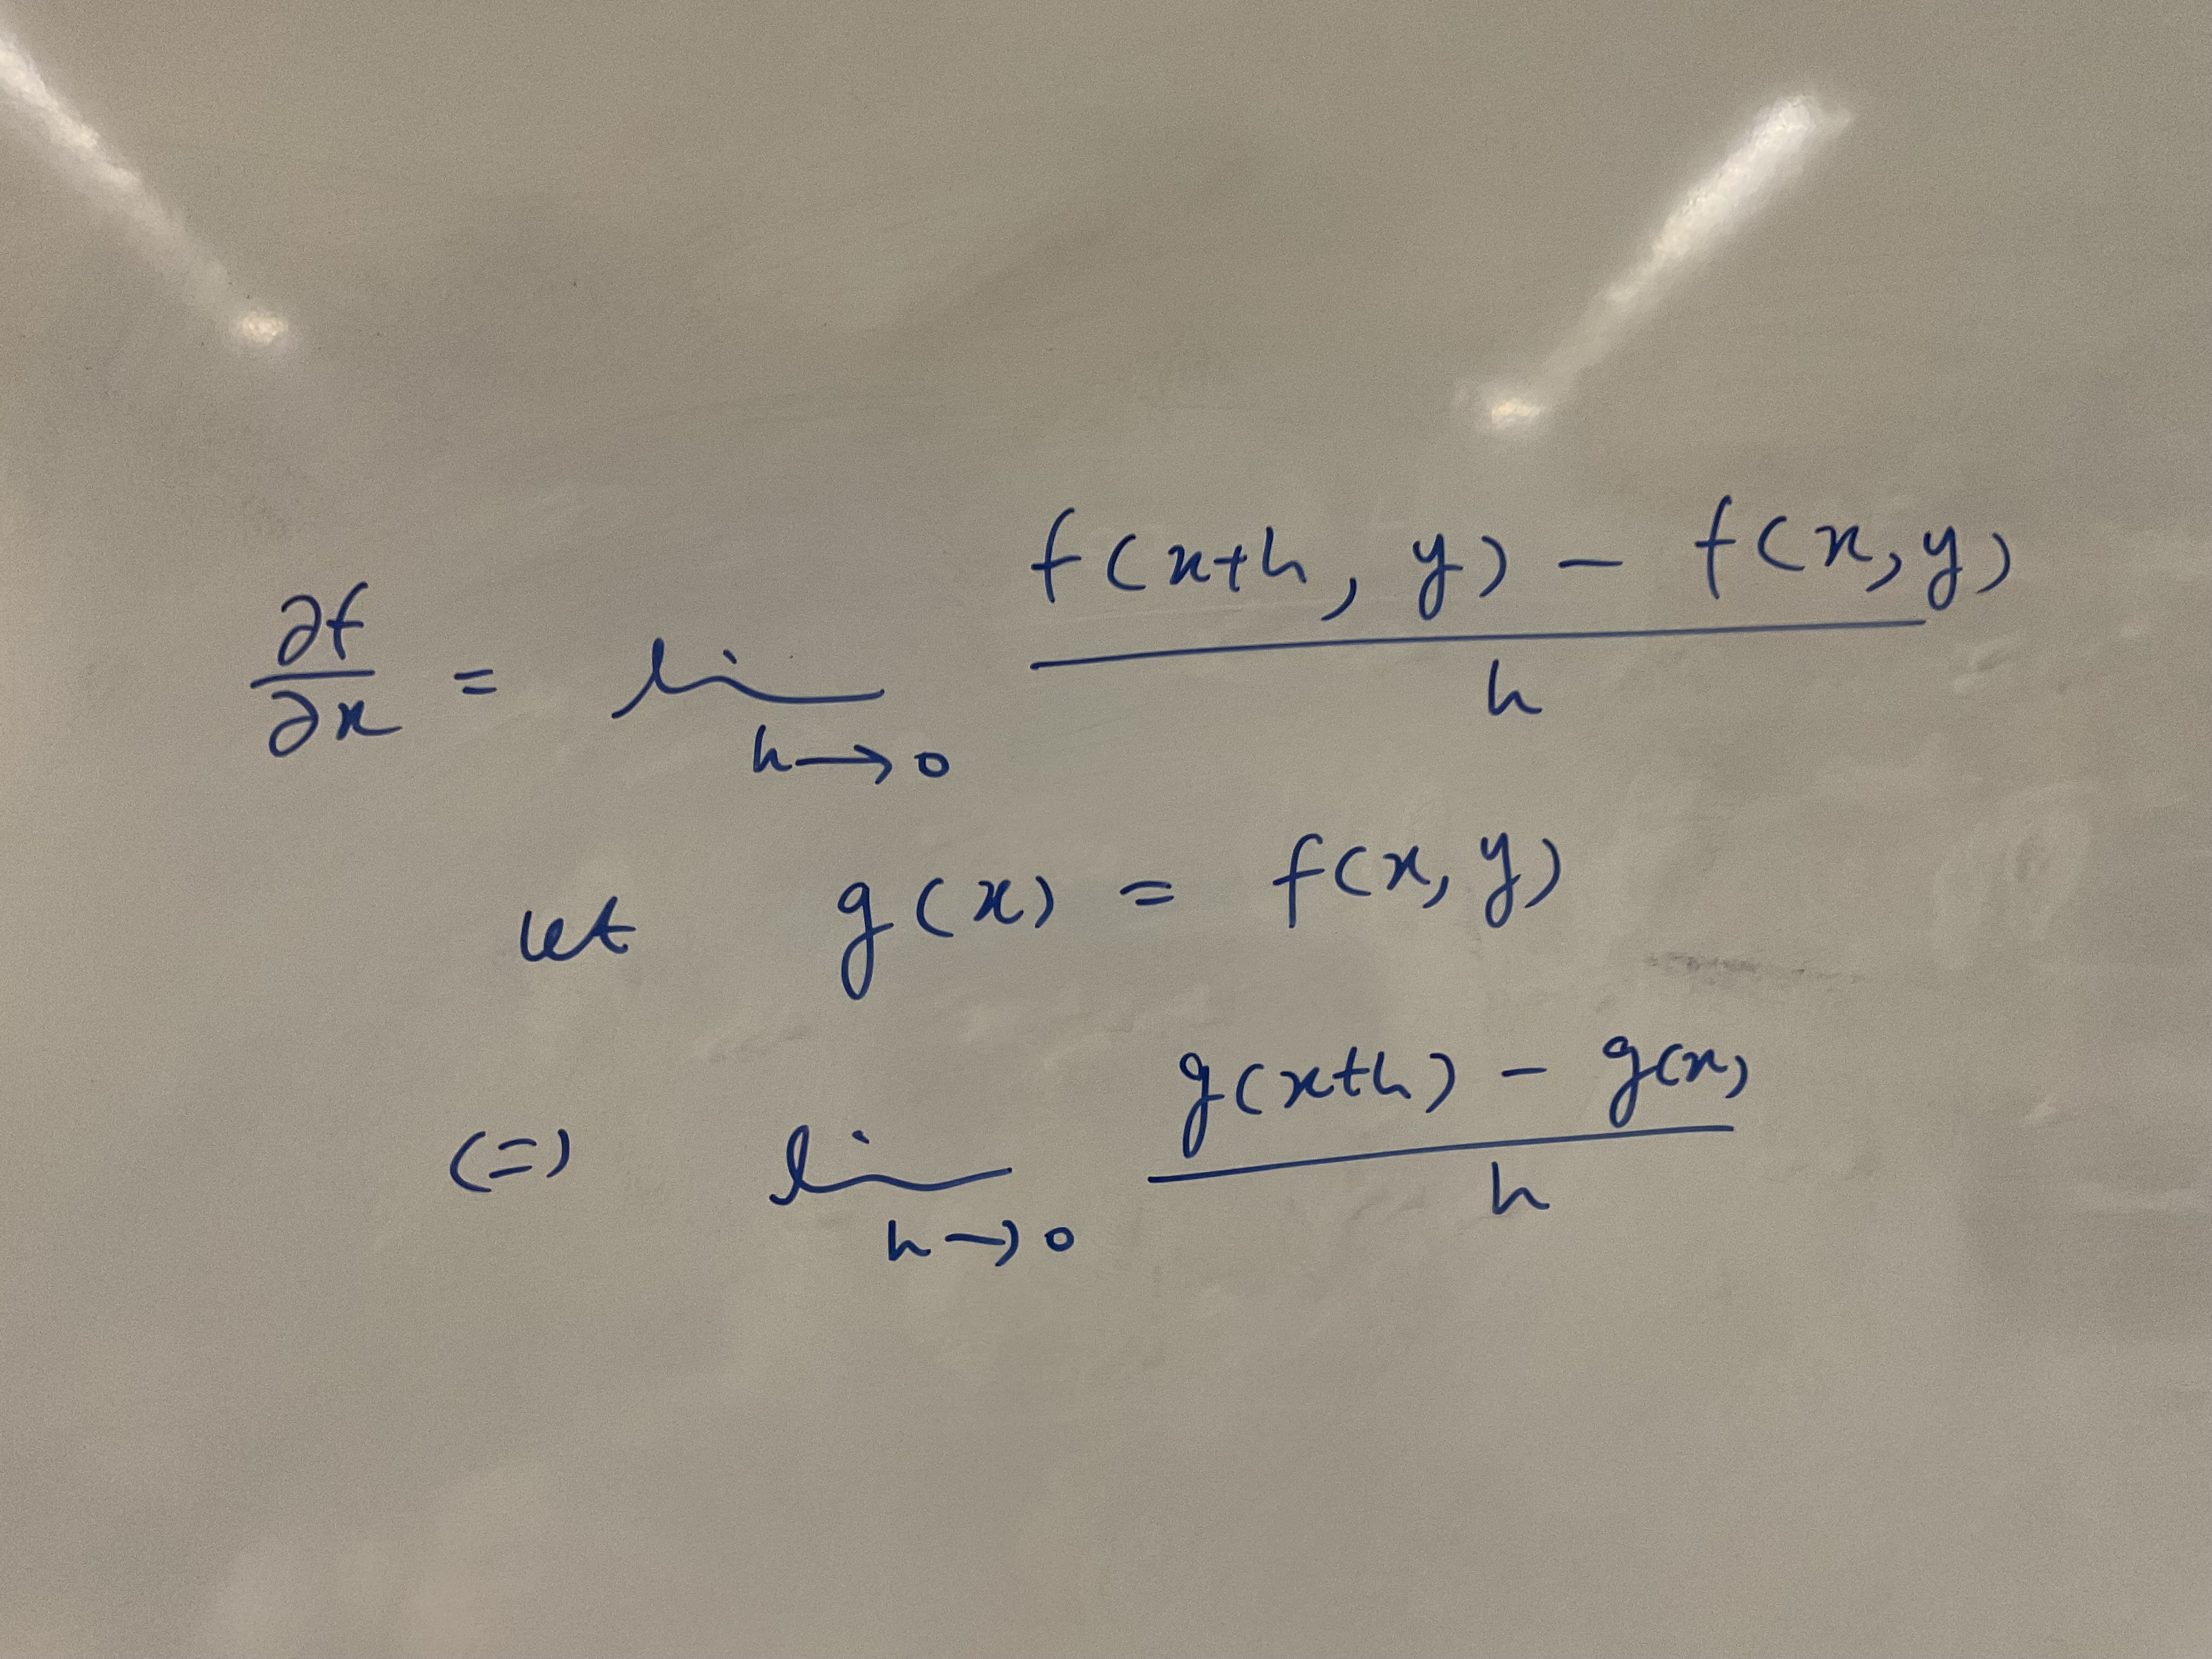 ∂f/∂x = lim h→0 f(x+h, y) − f(x, y) / h
let g(x) = f(x, y)
(=) lim h→0 g(x+h) − g(x) / h